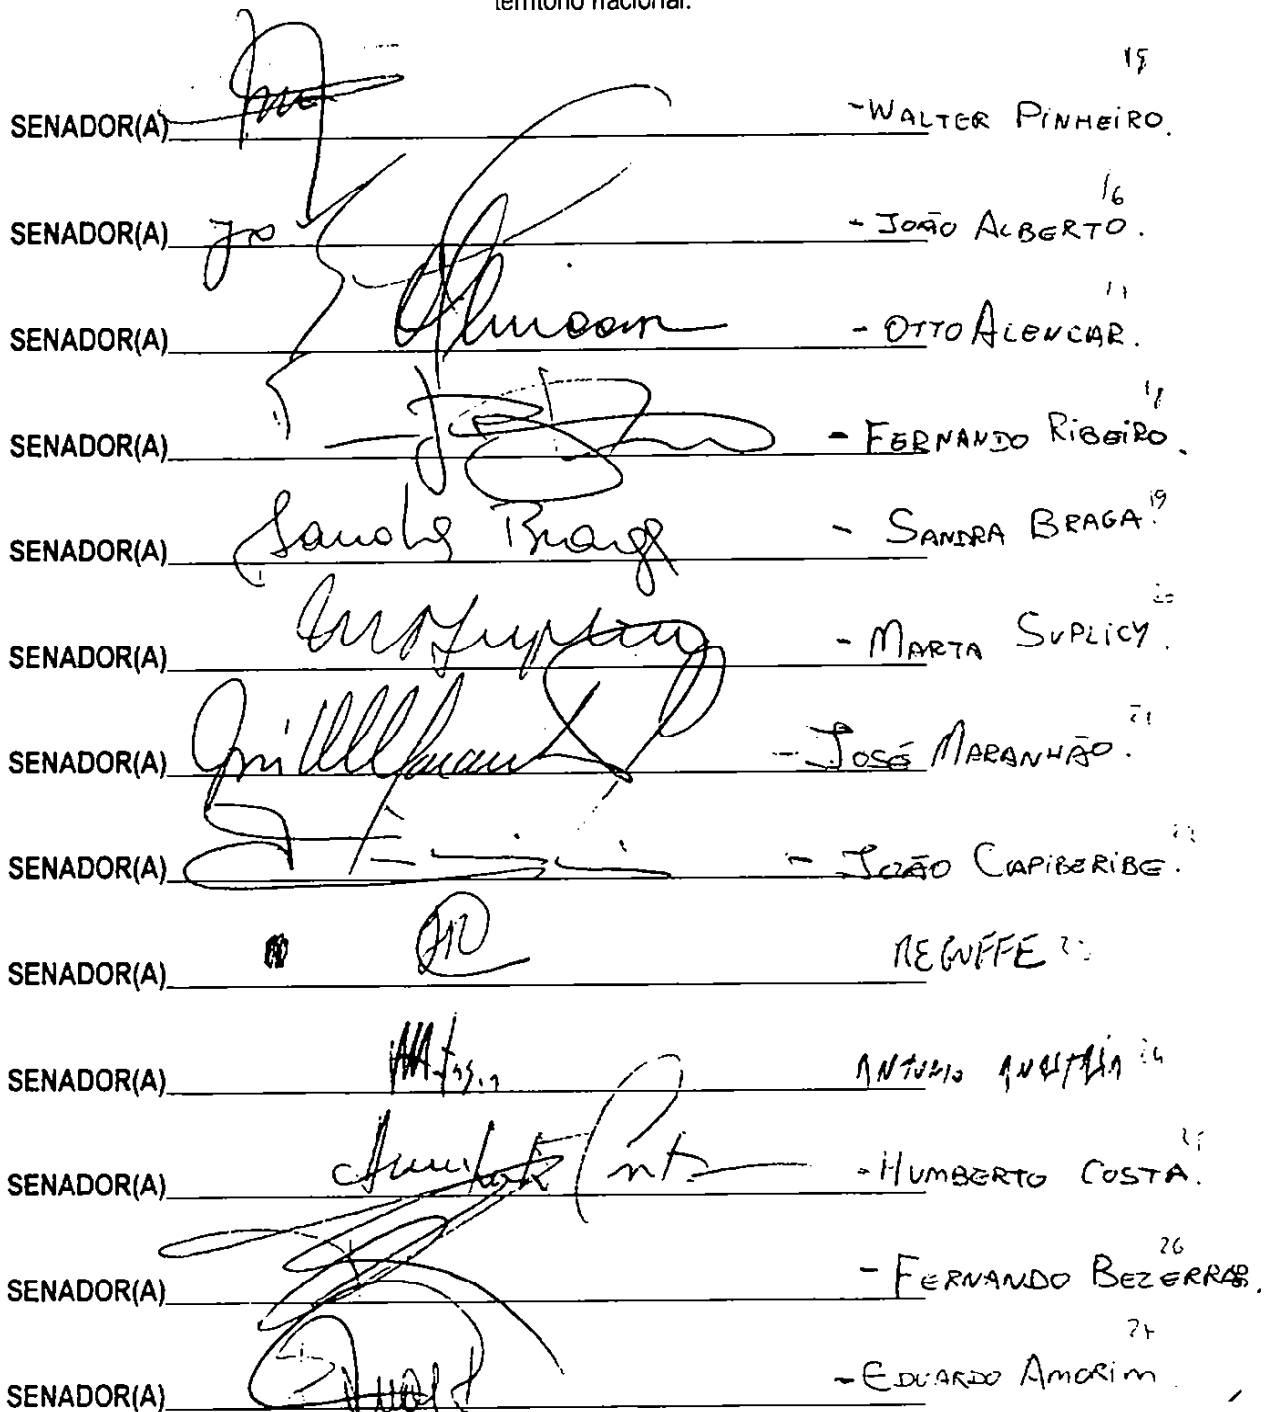 território nacional.
15
SENADOR(A) - WALTER PINHEIRO.
16
SENADOR(A) - JOÃO ALBERTO.
17
SENADOR(A) - OTTO ALENCAR.
18
SENADOR(A) - FERNANDO RIBEIRO.
19
SENADOR(A) Sandra Braga - SANDRA BRAGA.
20
SENADOR(A) - MARTA SUPLICY.
21
SENADOR(A) - JOSÉ MARANHÃO.
SENADOR(A) - JOÃO CAPIBERIBE.
SENADOR(A) REGUFFE
24
SENADOR(A) ANTONIO ANASTASIA
25
SENADOR(A) Humberto Costa - HUMBERTO COSTA.
26
SENADOR(A) - FERNANDO BEZERRA.
27
SENADOR(A) - EDUARDO AMORIM